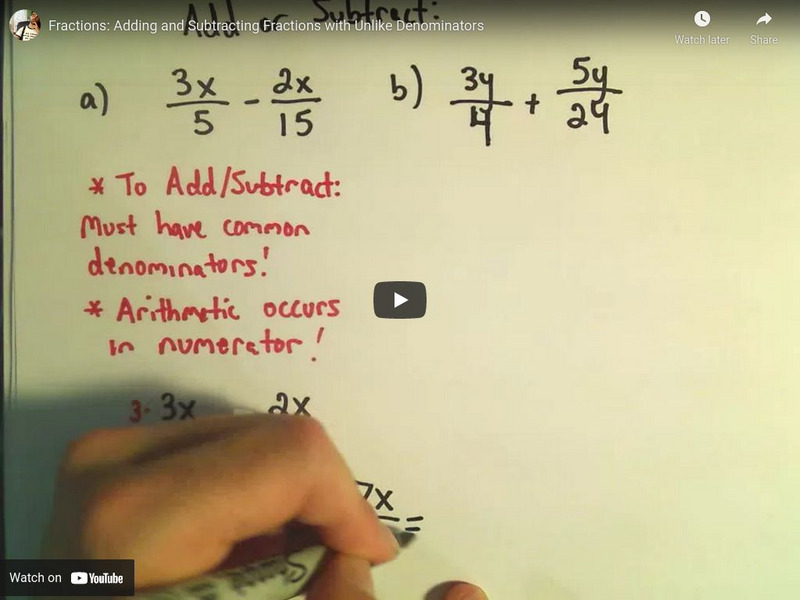 Add or Subtract:
Fractions: Adding and Subtracting Fractions with Unlike Denominators
Watch later
Share
a) 3x/5 - 2x/15
b) 3y/4 + 5y/24
* To Add/Subtract:
Must have common
denominators!
* Arithmetic occurs
in numerator!
3· 3x 2x
7x
=
Watch on YouTube